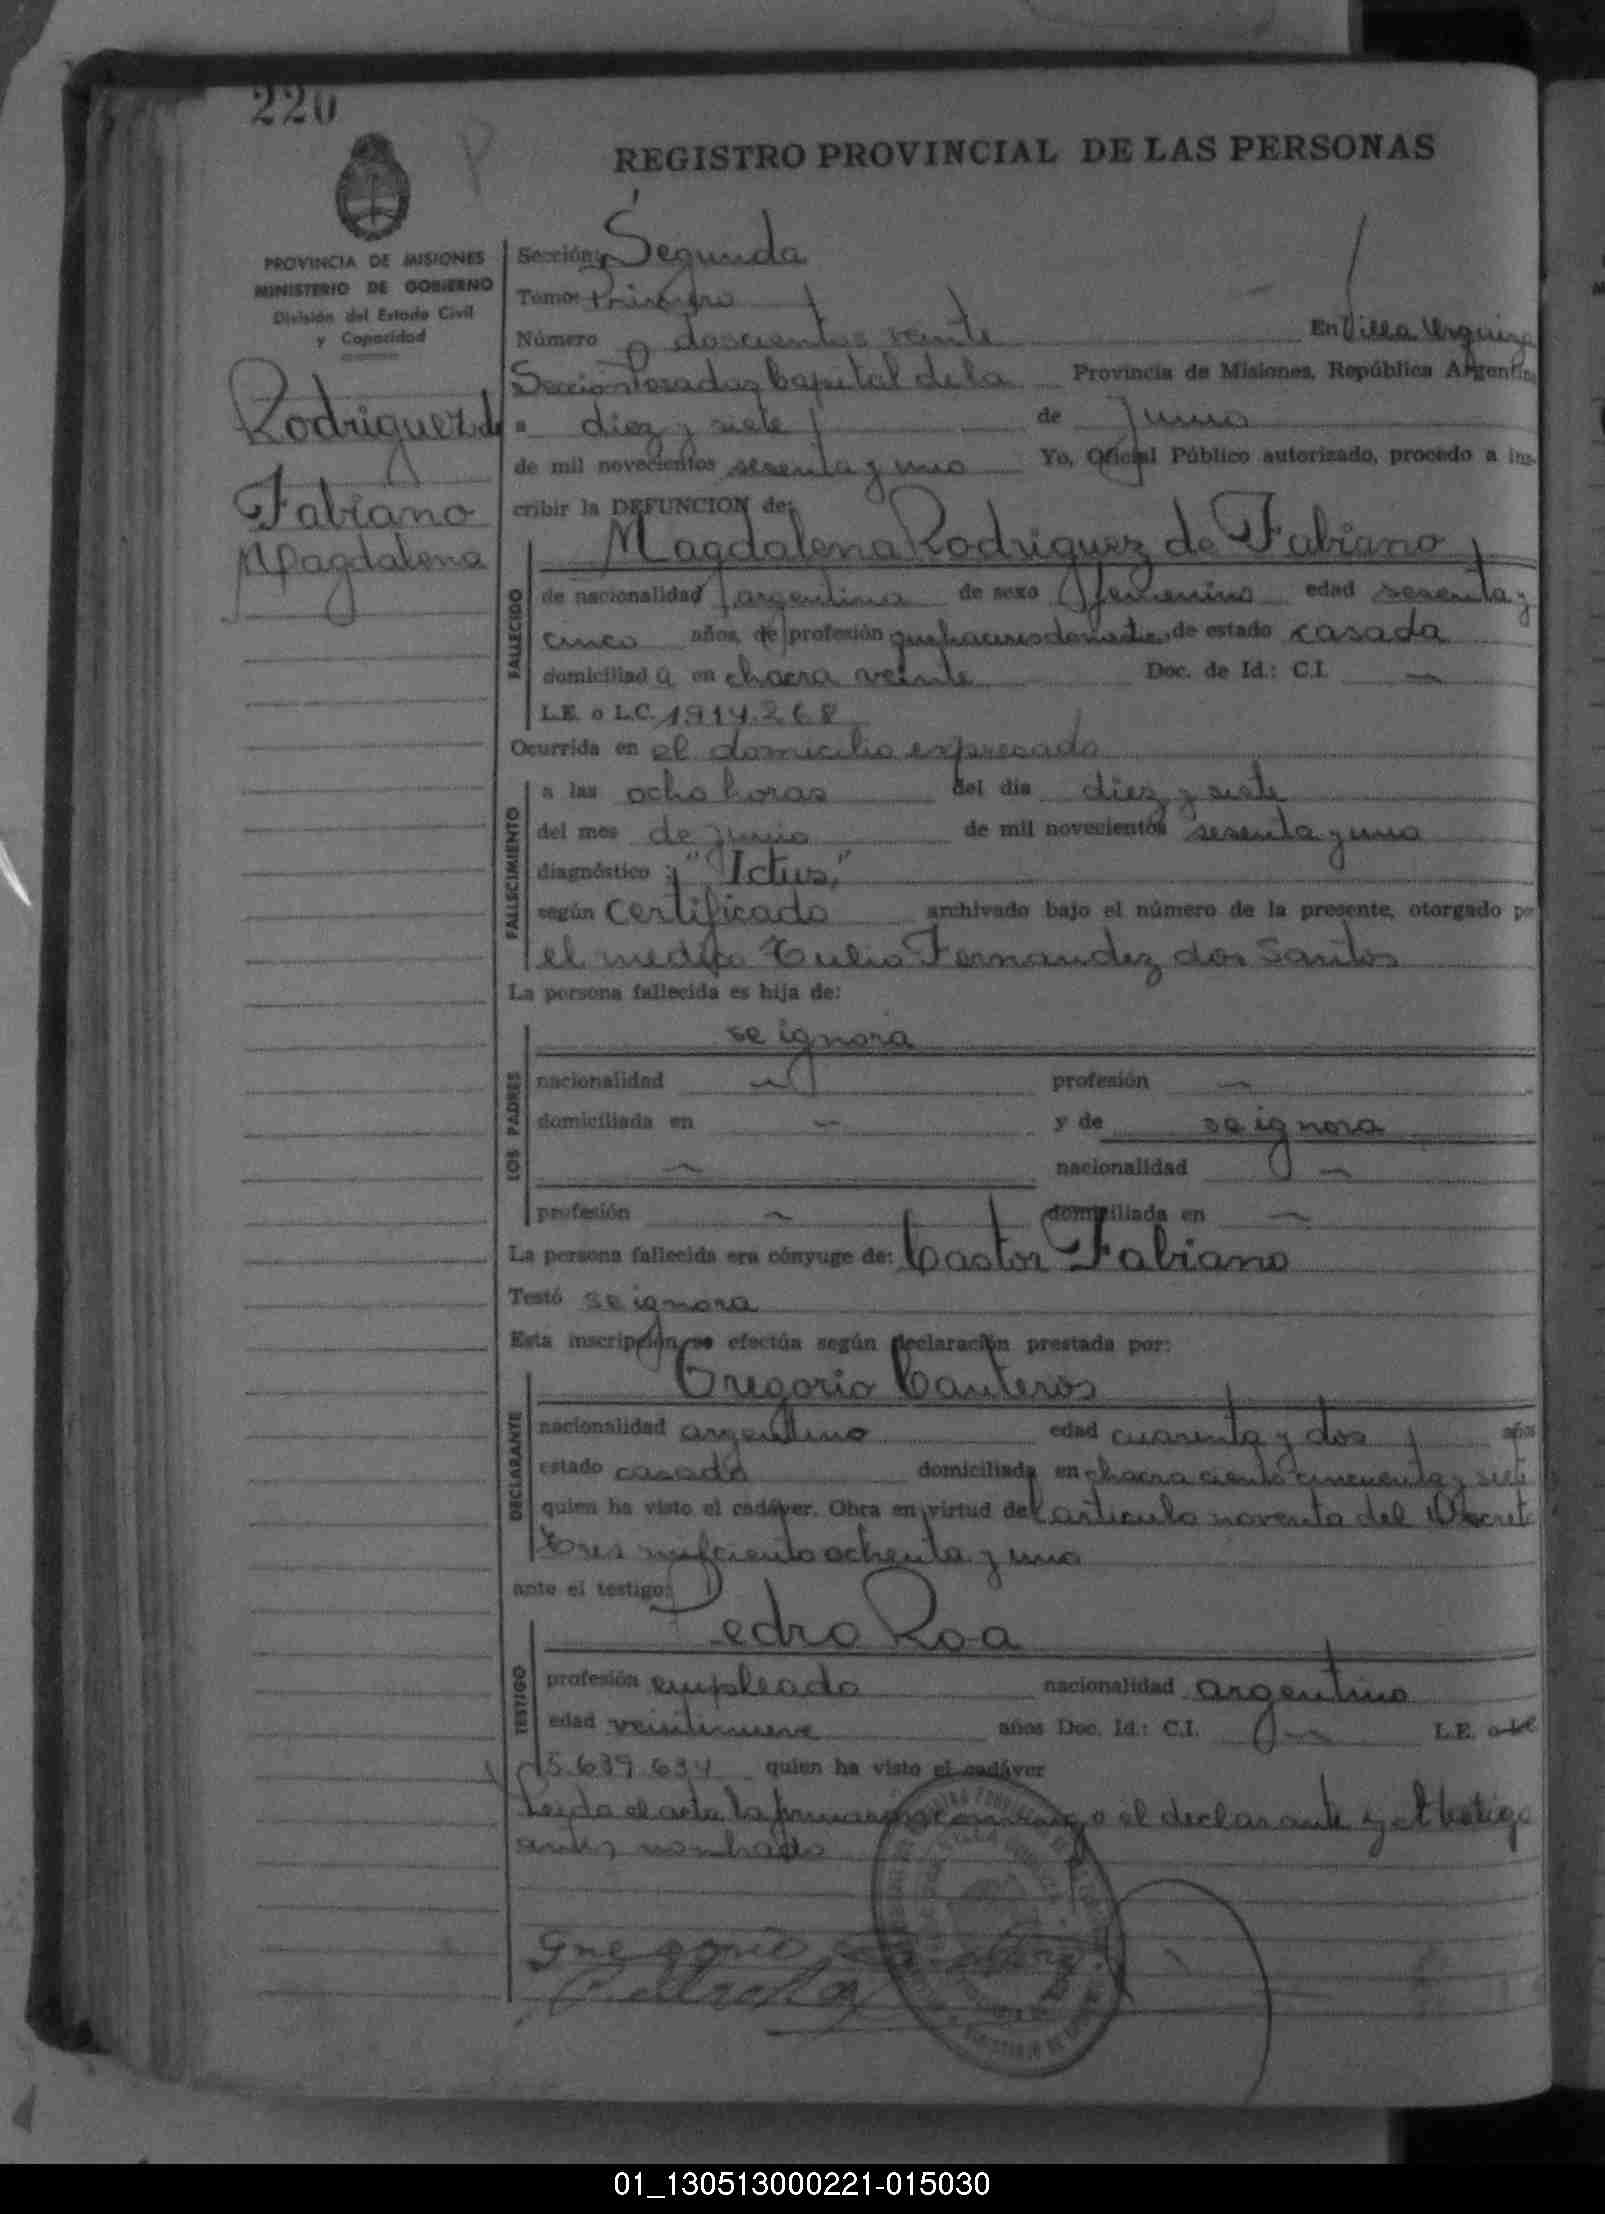 220
P
REGISTRO PROVINCIAL DE LAS PERSONAS
PROVINCIA DE MISIONES
MINISTERIO DE GOBIERNO
División del Estado Civil
y Capacidad
Rodriguez de
Fabiano
Magdalena
Sección: Segunda
Tomo: Primero
Número doscientos veinte En Villa Urquiza
Seccion Posadas Capital de la Provincia de Misiones, República Argentina
a diez y siete de junio
de mil novecientos sesenta y uno Yo, Oficial Público autorizado, procedo a ins-
cribir la DEFUNCION de:
Magdalena Rodriguez de Fabiano
FALLECIDO
de nacionalidad argentina de sexo femenino edad sesenta y
cinco años, de profesión quehaceres domesticos de estado casada
domiciliada en chacra veinte Doc. de Id.: C.I. —
L.E. o L.C. 1914.268
Ocurrida en el domicilio expresado
FALLECIMIENTO
a las ocho horas del día diez y siete
del mes de junio de mil novecientos sesenta y uno
diagnóstico : "Ictus"
según certificado archivado bajo el número de la presente, otorgado por
el medico Tulio Fernandez dos Santos
La persona fallecida es hija de:
LOS PADRES
se ignora
nacionalidad — profesión —
domiciliada en — y de se ignora
— nacionalidad —
profesión — domiciliada en —
La persona fallecida era cónyuge de: Castor Fabiano
Testó se ignora
Esta inscripción se efectúa según declaración prestada por:
DECLARANTE
Gregorio Canteros
nacionalidad argentino edad cuarenta y dos años
estado casado domiciliada en chacra ciento cincuenta y siete
quien ha visto el cadáver. Obra en virtud del articulo noventa del Decreto
tres mil ciento ochenta y uno
ante el testigo:
TESTIGO
Pedro Roa
profesión empleado nacionalidad argentino
edad veintinueve años Doc. Id.: C.I. — L.E.
5.639.634 quien ha visto el cadáver
Leida el acta la firmaron conmigo el declarante y el testigo
antes nombrado
Gregorio
Pedro Roa
01_130513000221-015030